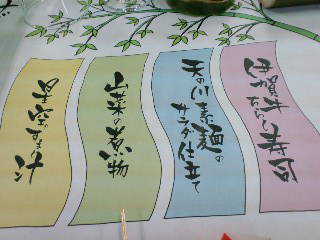 伊賀牛ちらし寿司
天の川素麺の
サラダ仕立て
山菜の煮物
星空のすまし汁